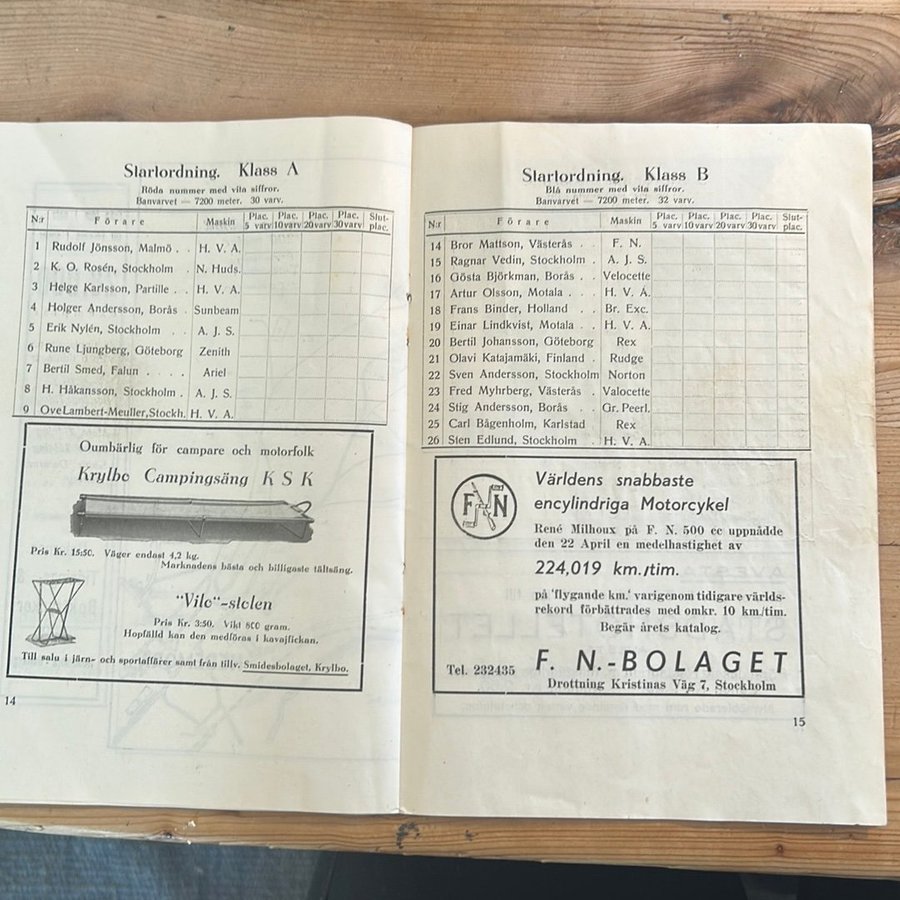 Startordning. Klass A
Röda nummer med vita siffror.
Banvarvet — 7200 meter. 30 varv.
N:r Förare Maskin Plac. 5 varv Plac. 10 varv Plac. 20 varv Plac. 30 varv Slut-plac.
1 Rudolf Jönsson, Malmö . . H. V. A.
2 K. O. Rosén, Stockholm . N. Huds.
3 Helge Karlsson, Partille . . H. V. A.
4 Holger Andersson, Borås . Sunbeam
5 Erik Nylén, Stockholm . . A. J. S.
6 Rune Ljungberg, Göteborg Zenith
7 Bertil Smed, Falun . . . . Ariel
8 H. Håkansson, Stockholm . A. J. S.
9 Ove Lambert-Meuller, Stockh. H. V. A.
Oumbärlig för campare och motorfolk
Krylbo Campingsäng K S K
Pris Kr. 15:50. Väger endast 4,2 kg.
Marknadens bästa och billigaste tältsäng.
"Vilo"-stolen
Pris Kr. 3:50. Vikt 800 gram.
Hopfälld kan den medföras i kavajfickan.
Till salu i järn- och sportaffärer samt från tillv. Smidesbolaget, Krylbo.
14
Startordning. Klass B
Blå nummer med vita siffror.
Banvarvet — 7200 meter. 32 varv.
N:r Förare Maskin Plac. 5 varv Plac. 10 varv Plac. 20 varv Plac. 30 varv Slut-plac.
14 Bror Mattson, Västerås . . F. N.
15 Ragnar Vedin, Stockholm . A. J. S.
16 Gösta Björkman, Borås . . Velocette
17 Artur Olsson, Motala . . . H. V. A.
18 Frans Binder, Holland . . Br. Exc.
19 Einar Lindkvist, Motala . . H. V. A.
20 Bertil Johansson, Göteborg Rex
21 Olavi Katajamäki, Finland . Rudge
22 Sven Andersson, Stockholm Norton
23 Fred Myhrberg, Västerås . Valocette
24 Stig Andersson, Borås . . Gr. Peerl.
25 Carl Bågenholm, Karlstad Rex
26 Sten Edlund, Stockholm . H. V. A.
FN
Världens snabbaste
encylindriga Motorcykel
René Milhoux på F. N. 500 cc uppnådde
den 22 April en medelhastighet av
224,019 km./tim.
på 'flygande km.' varigenom tidigare världs-
rekord förbättrades med omkr. 10 km/tim.
Begär årets katalog.
Tel. 232435 F. N.-BOLAGET
Drottning Kristinas Väg 7, Stockholm
15